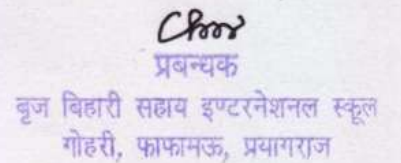 प्रबन्धक
बृज बिहारी सहाय इण्टरनेशनल स्कूल
गोहरी, फाफामऊ, प्रयागराज